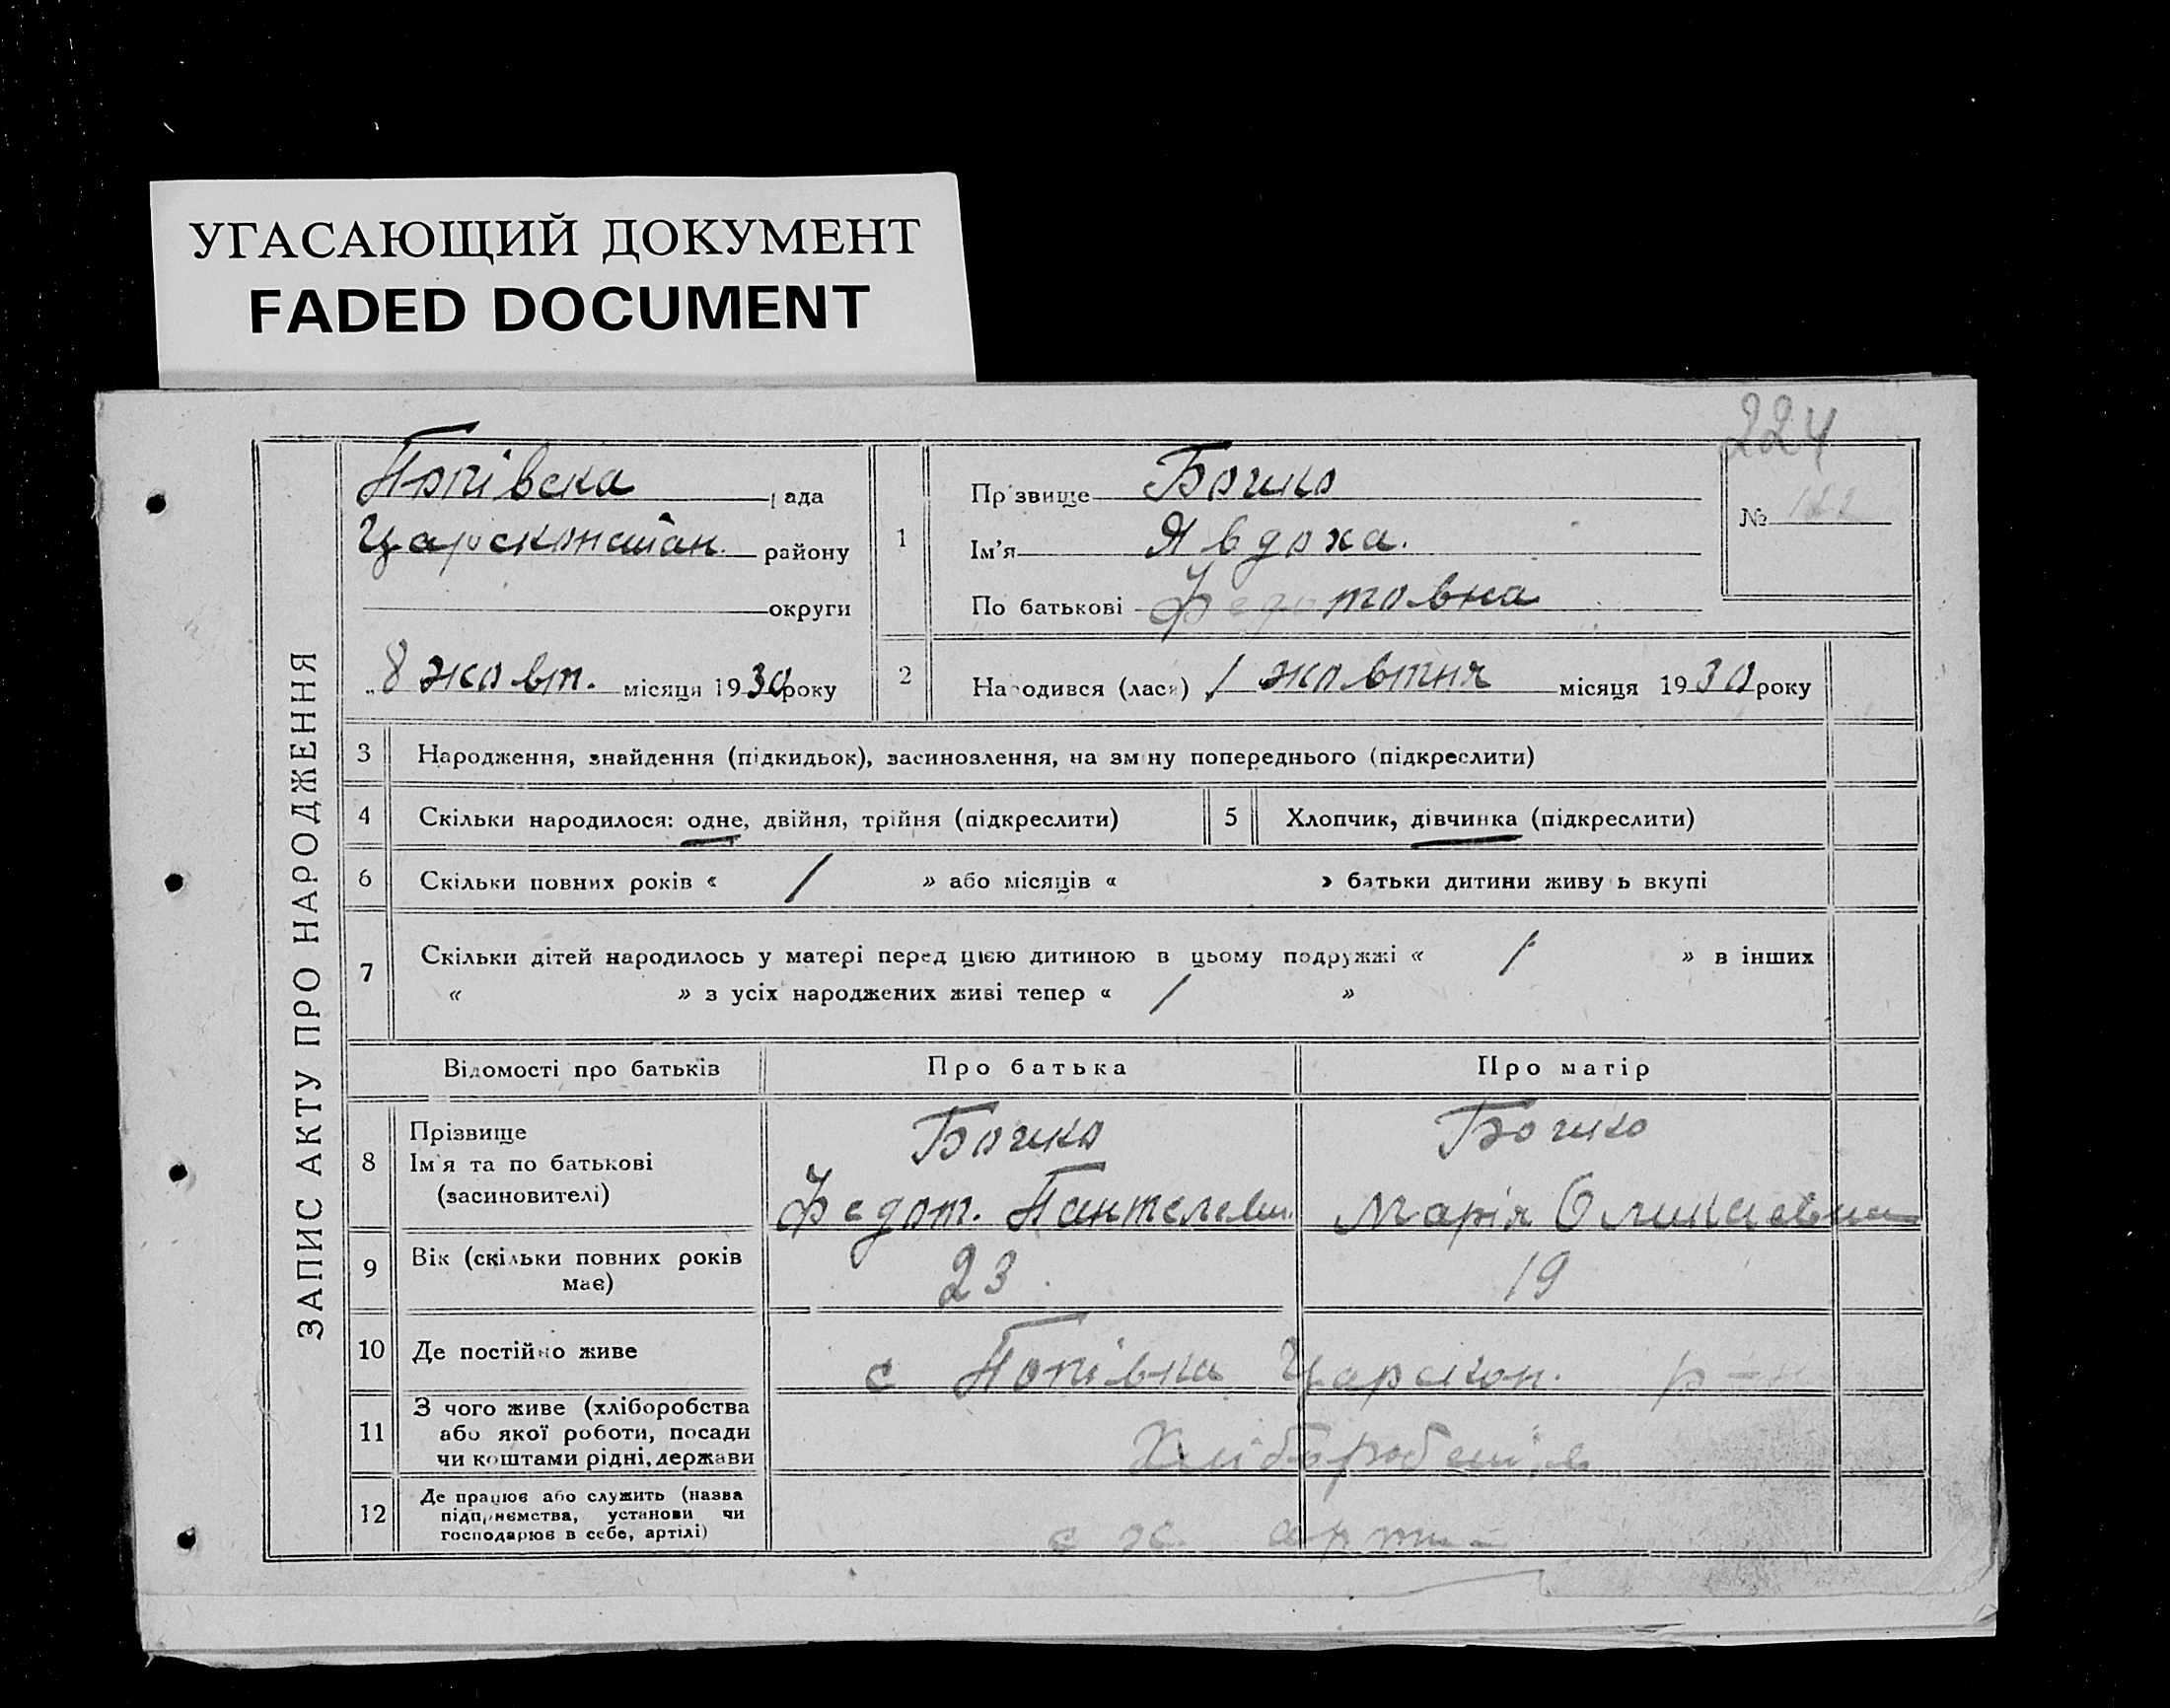 УГАСАЮЩИЙ ДОКУМЕНТ
FADED DOCUMENT
224
ЗАПИС АКТУ ПРО НАРОДЖЕННЯ
Попівска рада
Царсконстан. району
округи
8 жовт. місяця 1930 року
1
Прізвище Бочко
Ім'я Явдоха.
По батькові Федотовна
№ 122
2
Народився (лася) 1 жовтня місяця 1930 року
3 Народження, знайдення (підкидьок), засиновлення, на зміну попереднього (підкреслити)
4 Скільки народилося: одне, двійня, трійня (підкреслити)
5 Хлопчик, дівчинка (підкреслити)
6 Скільки повних років « 1 » або місяців « » батьки дитини живуть вкупі
7 Скільки дітей народилось у матері перед цією дитиною в цьому подружжі « / » в інших
« » з усіх народжених живі тепер « / »
Відомості про батьків Про батька Про матір
8 Прізвище
Ім'я та по батькові
(засиновителі)
Бочко
Федот. Пантелеви.
Бочко
Марія
9 Вік (скільки повних років
має)
23
19
10 Де постійно живе
с Попівка Царскон. р-н
11 З чого живе (хліборобства
або якої роботи, посади
чи коштами рідні, держави
12 Де працює або служить (назва
підприємства, установи чи
господарює в себе, артілі)